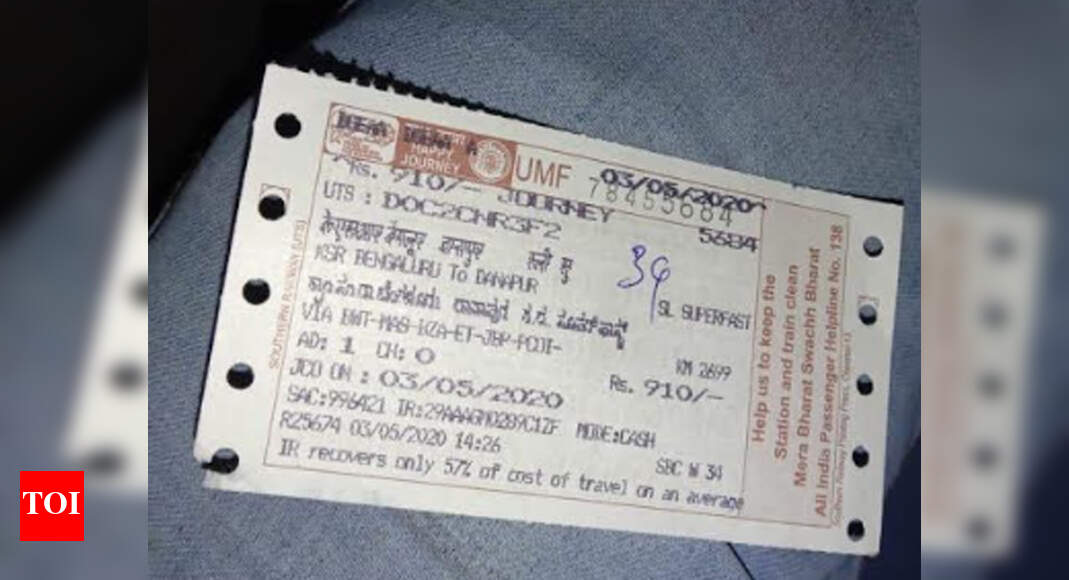 HAPPY
JOURNEY
UMF 78455684
03/05/2020
Rs. 910/- JOURNEY
UTS : 5684
केएसआर बेंगलूर दानापुर
KSR BENGALURU TO DANAPUR
34
SL SUPERFAST
VIA BWT-MAS-BZA-ET-JBP-PCOI-
KM 2699
AD: 1 CH: 0
Rs. 910/-
JCO ON : 03/05/2020
SAC:996421 MODE:CASH
R25674 03/05/2020 14:26
SBC W 34
IR recovers only 57% of cost of travel on an average
SOUTHERN RAILWAY (UTS)
Help us to keep the
Station and train clean
Mera Bharat Swachh Bharat
All India Passenger Helpline No. 138
TOI